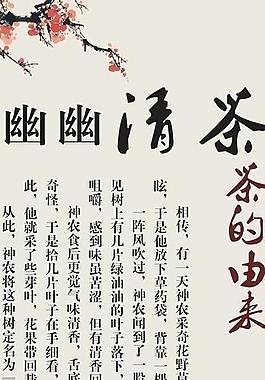 幽幽清茶
茶的由来
相传，有一天神农采奇花野草
眩，于是他放下草药袋，背靠一棵
一阵风吹过，神农闻到了一股
见树上有几片绿油油的叶子落下，
咀嚼，感到味虽苦涩，但有清香回
神农食后更觉气味清香，舌底
奇怪，于是拾几片叶子在手细看，
此，他就采了些芽叶，花果带回栽
从此，神农将这种树定名为